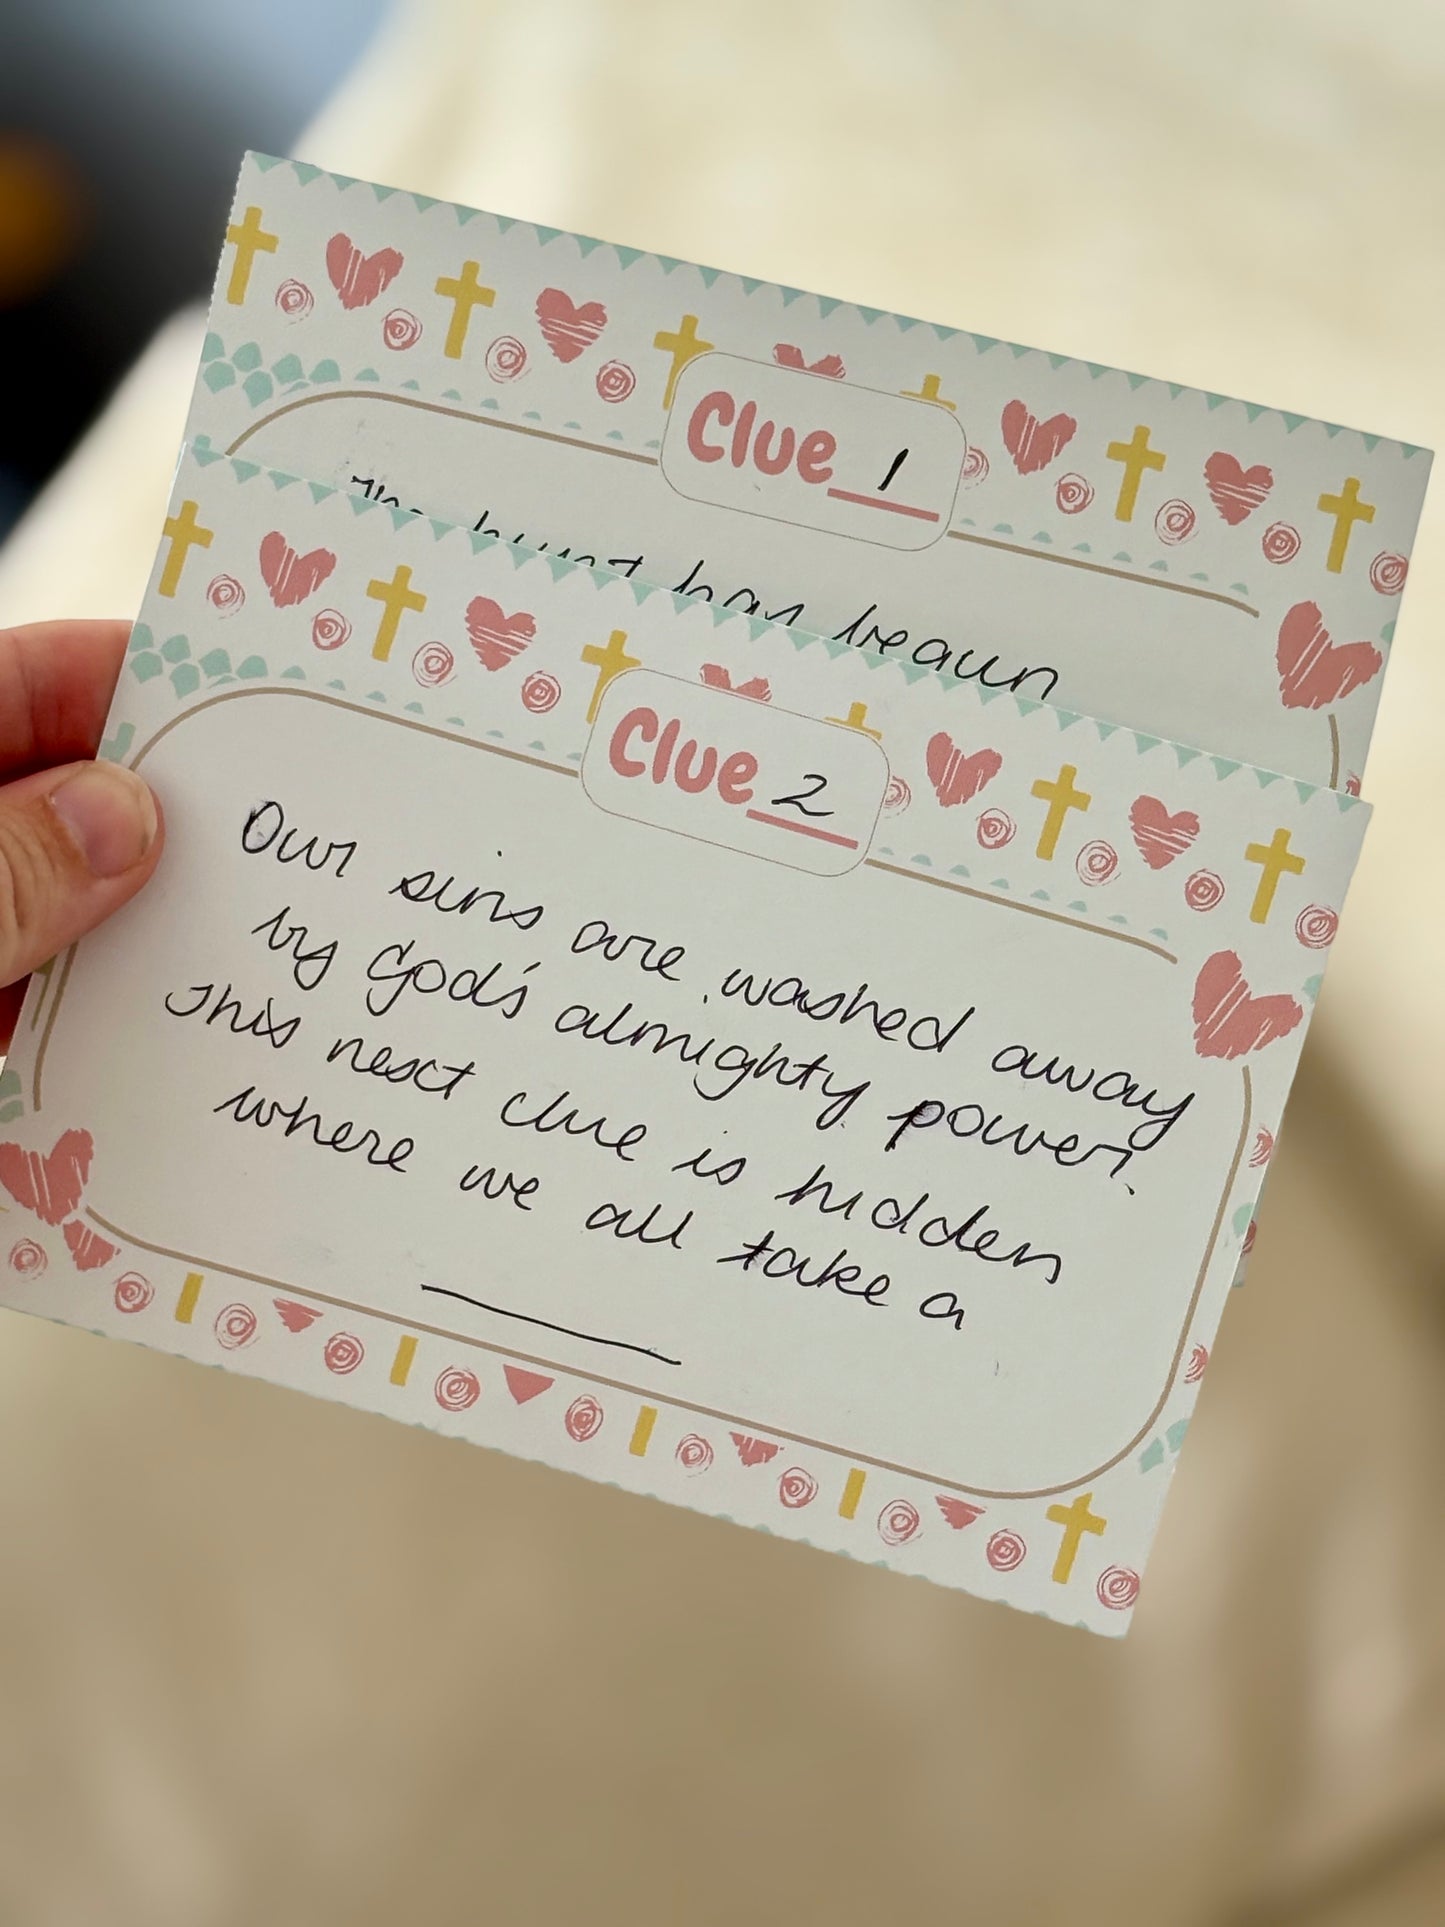 Clue 1
The hunt has begun
Clue 2
Our sins are washed away
by God's almighty power.
This next clue is hidden
where we all take a